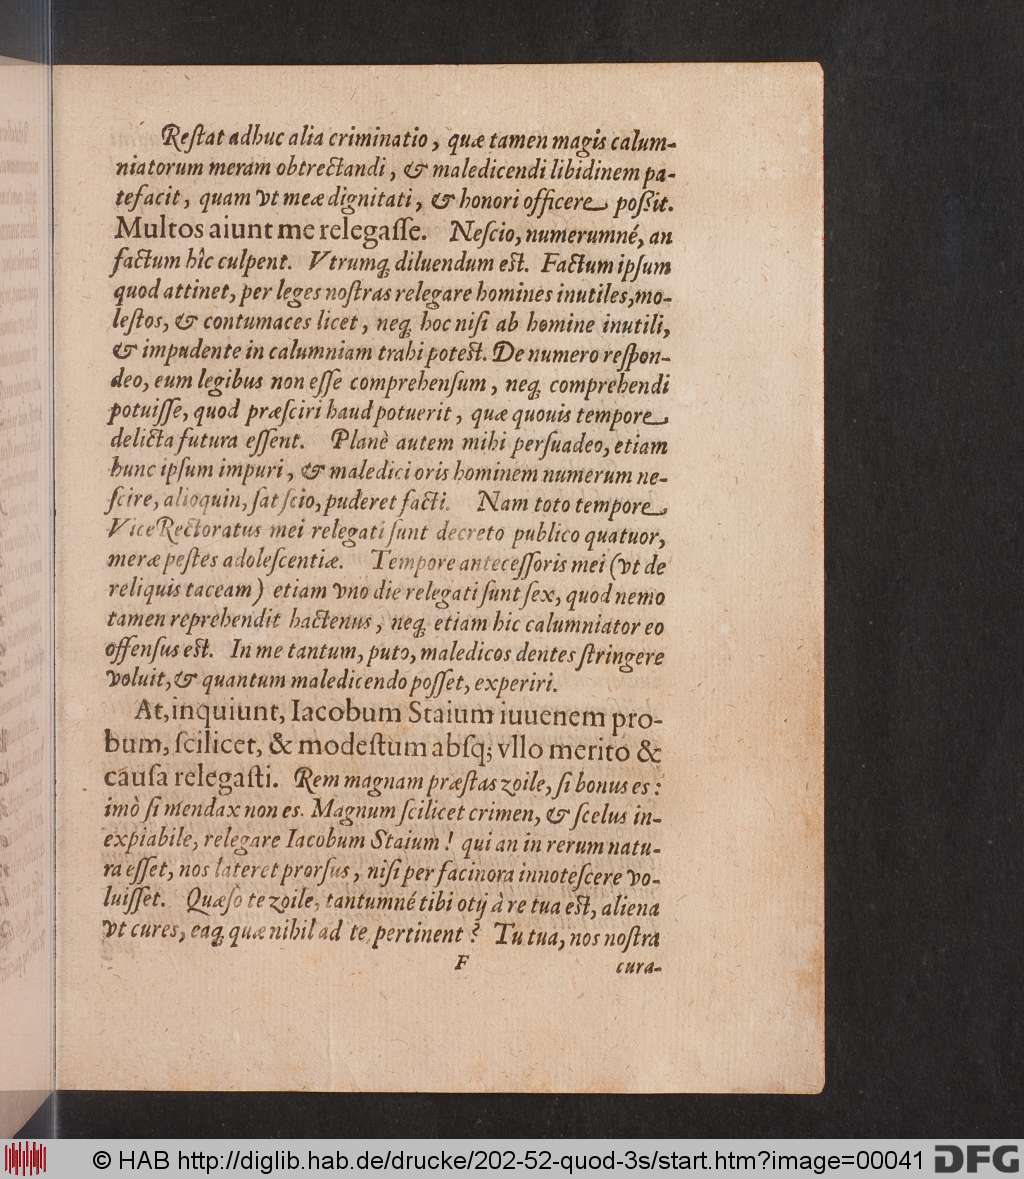 Reſtat adhuc alia criminatio, quæ tamen magis calum-
niatorum meram obtrectandi, & maledicendi libidinem pa-
tefacit, quam vt meæ dignitati, & honori officere poßit.
Multos aiunt me relegaſſe. Neſcio, numerumné, an
factum hîc culpent. Vtrumq; diluendum est. Factum ipſum
quod attinet, per leges noſtras relegare homines inutiles, mo-
leſtos, & contumaces licet, neq; hoc niſi ab homine inutili,
& impudente in calumniam trahi potest. De numero reſpon-
deo, eum legibus non eſſe comprehenſum, neq; comprehendi
potuiſſe, quod præſciri haud potuerit, quæ quouis tempore
delicta futura eſſent. Planè autem mihi perſuadeo, etiam
hunc ipſum impuri, & maledici oris hominem numerum ne-
ſcire, alioquin, ſat ſcio, puderet facti. Nam toto tempore
ViceRectoratus mei relegati ſunt decreto publico quatuor,
meræ peſtes adoleſcentiæ. Tempore anteceſſoris mei (vt de
reliquis taceam) etiam vno die relegati ſunt ſex, quod nemo
tamen reprehendit hactenus, neq; etiam hic calumniator eo
offenſus est. In me tantum, puto, maledicos dentes ſtringere
voluit, & quantum maledicendo poſſet, experiri.
At, inquiunt, Iacobum Staium iuuenem pro-
bum, ſcilicet, & modeſtum abſq; vllo merito &
cauſa relegaſti. Rem magnam præſtas zoile, ſi bonus es:
imò ſi mendax non es. Magnum ſcilicet crimen, & ſcelus in-
expiabile, relegare Iacobum Staium! qui an in rerum natu-
ra eſſet, nos lateret prorſus, niſi per facinora innoteſcere vo-
luiſſet. Quæſo te zoile, tantumné tibi otij à re tua est, aliena
vt cures, eaq; quæ nihil ad te pertinent? Tu tua, nos noſtra
F cura-
© HAB http://diglib.hab.de/drucke/202-52-quod-3s/start.htm?image=00041 DFG